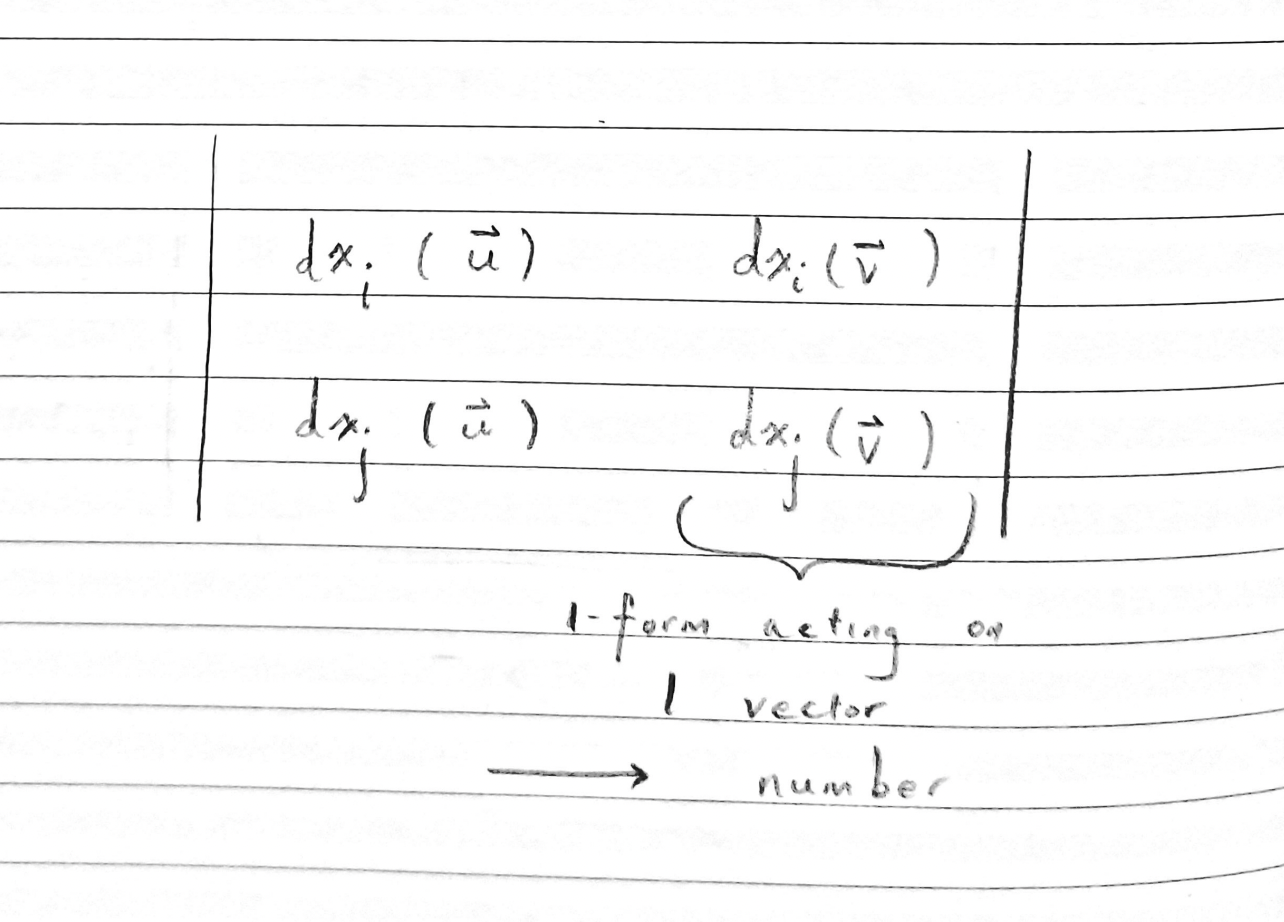 | dxᵢ (u⃗) dxᵢ (v⃗) |
| dxⱼ (u⃗) dxⱼ (v⃗) |
1-form acting on
1 vector
⟶ number